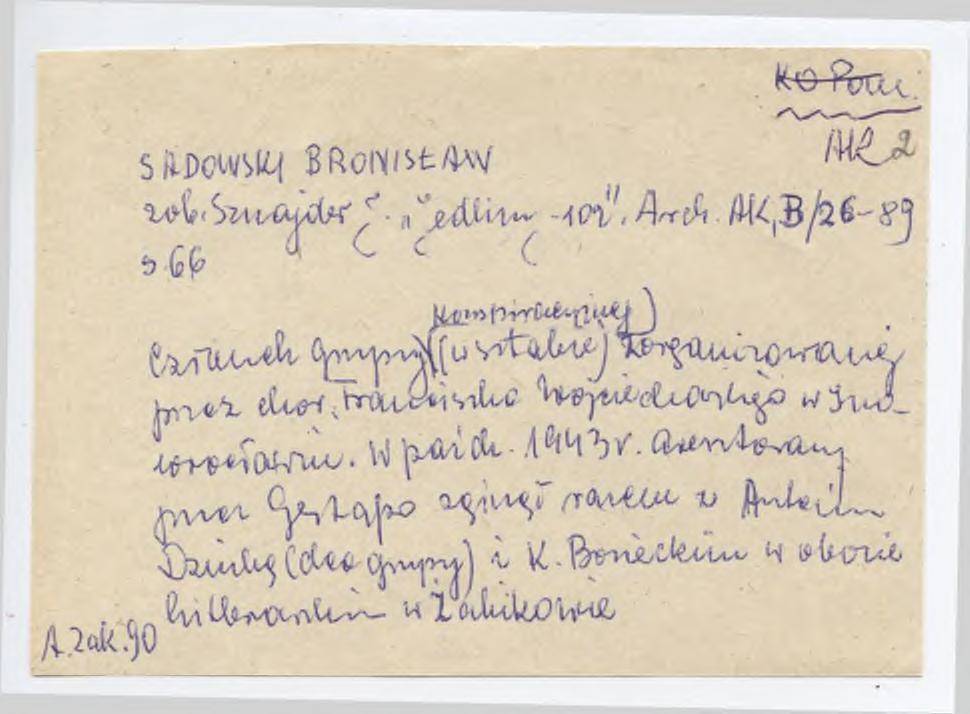 KO Pom.
AK 2
SADOWSKI BRONISŁAW
zob. Sznajder Arch. AK, B/26-89
s. 66
konspiracyjnej
Członek grupy (w sztabie) zorganizowanej
przez chor. Franciszka Wojciechowskiego w Ino-
wrocławiu. W paźdz. 1943 r. aresztowany
przez Gestapo zginął razem z Antonim
Dziubą (dca grupy) i K. Bonieckim w obozie
hitlerowskim w Żabikowie
A.Zak.90